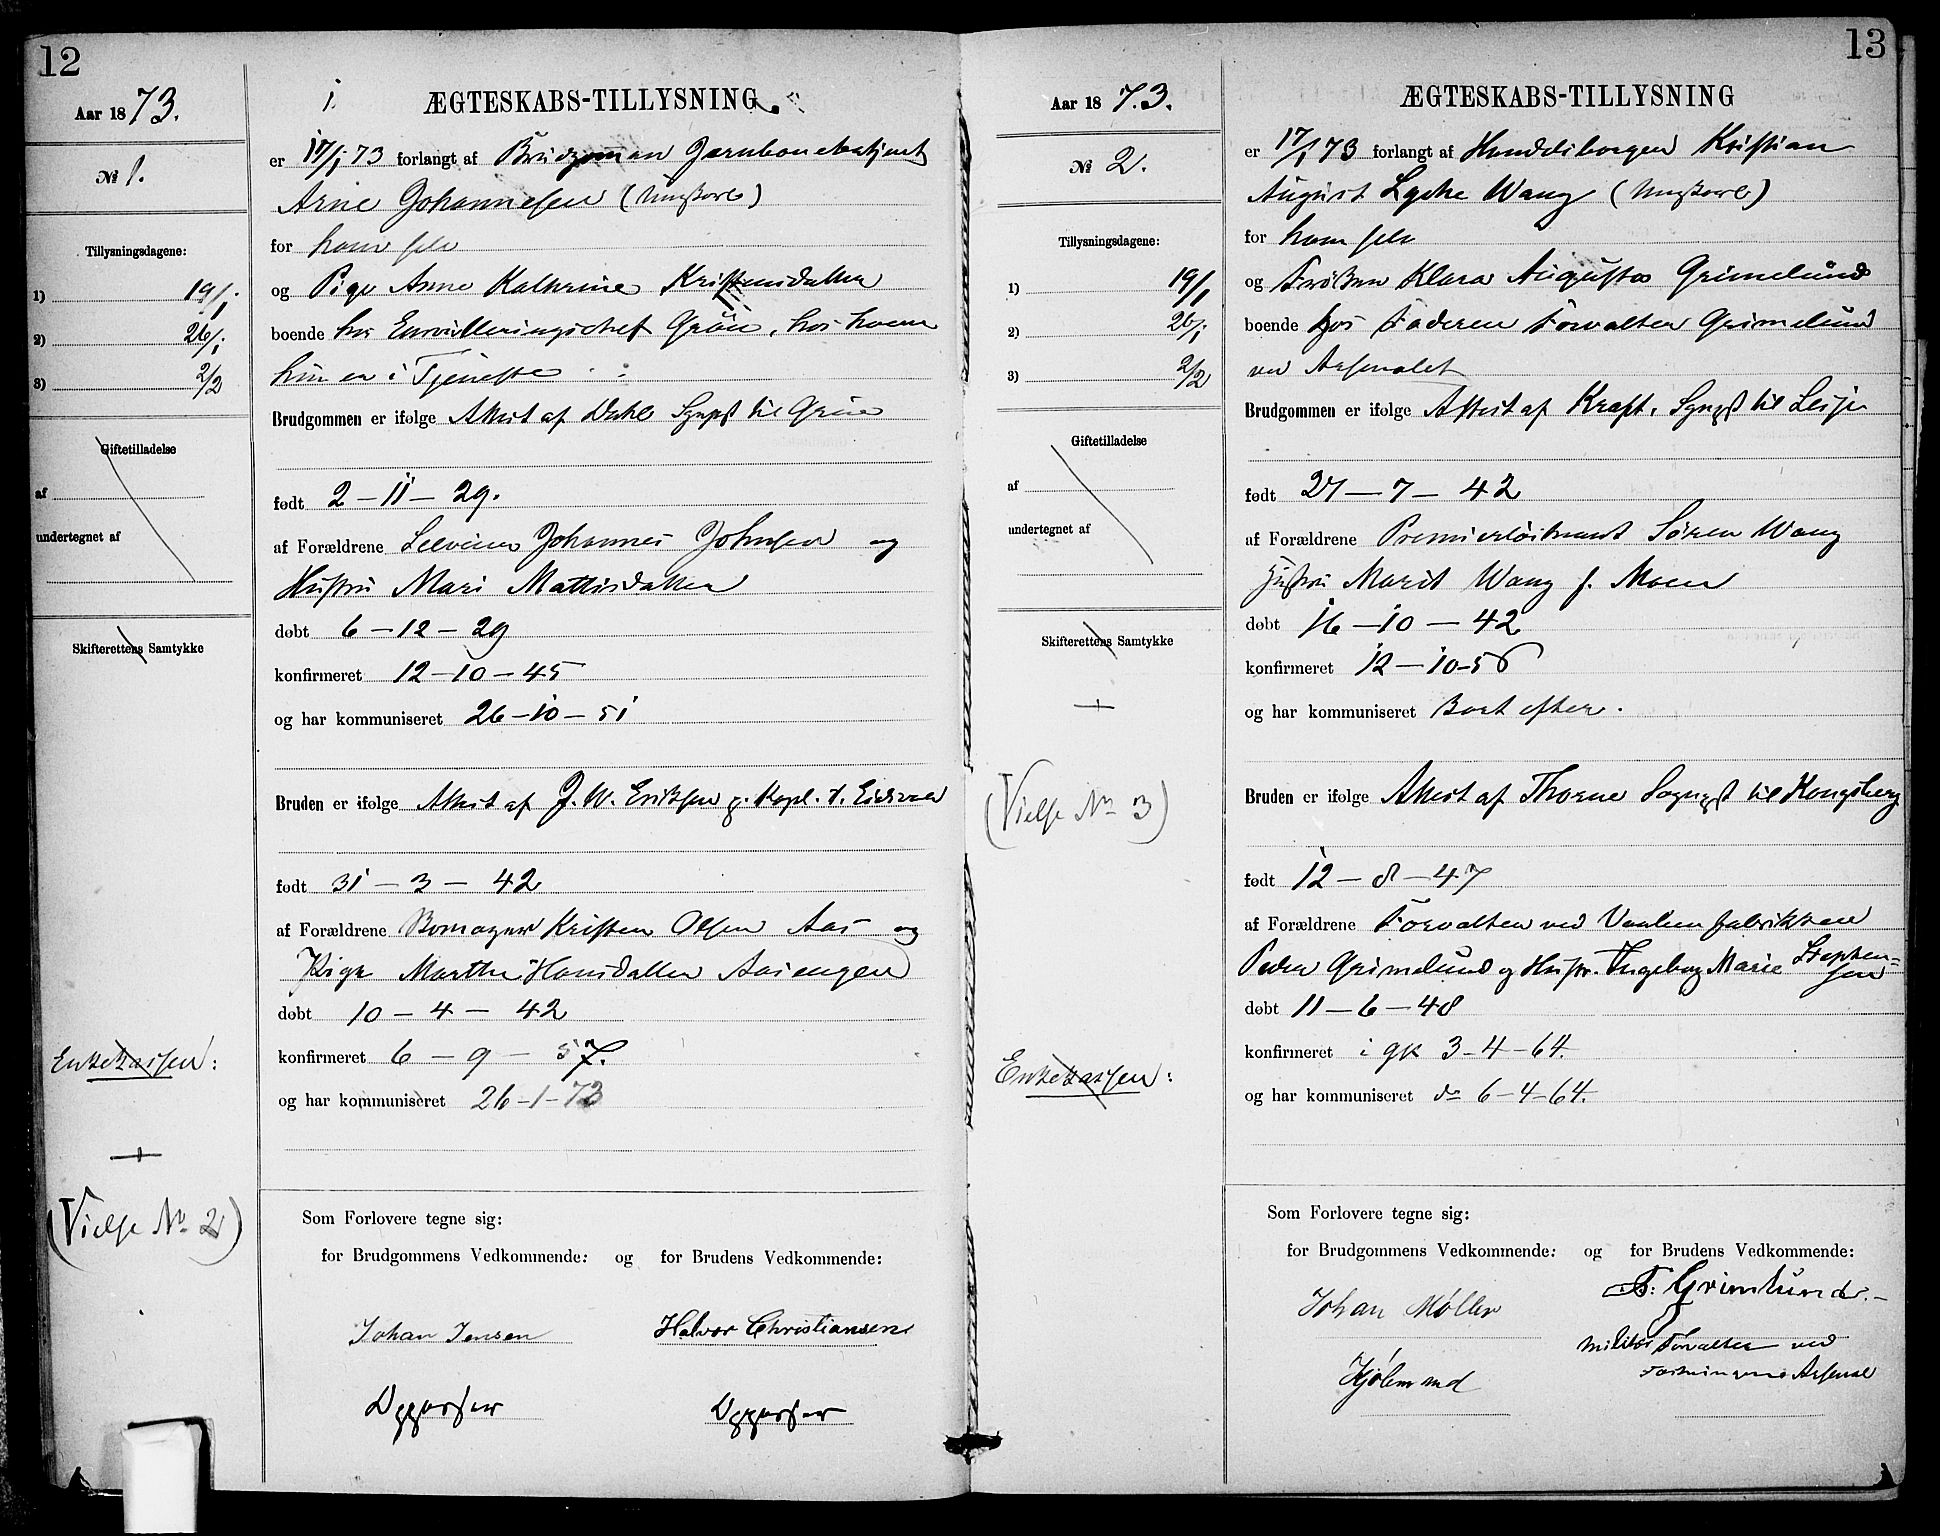 12
Aar 1873.
№ 1.
Tillysningsdagene:
1) 19/1
2) 26/1
3) 2/2
Giftetilladelse
af
undertegnet af
Skifterettens Samtykke
Enkekassen:
(Vielse Nr 2)
1.
ÆGTESKABS-TILLYSNING.
er 17/1 73 forlangt af Brudgoman Jernbanebetjent
Arne Johannesen (Ungkarl)
for ham selv
og Pige Anne Kathrine Kristensdatter
boende hos Grön, hos hvem
hun er i Tjeneste
Brudgommen er ifølge Attest af Dahl Sognpst til Grue
født 2-11-29.
af Forældrene Johannes Johnsen og
Hustru Mari Mattisdatter
døbt 6-12-29
konfirmeret 12-10-45
og har kommuniseret 26-10-51
Bruden er ifølge Attest af J. W. Eriksen p. Kapl. t. Eidsvold
født 31-3-42
af Forældrene Kristen Olsen Aas og
Pige Marthe Hansdatter Aasengen
døbt 10-4-42
konfirmeret 6-9-57.
og har kommuniseret 26-1-73
Som Forlovere tegne sig:
for Brudgommens Vedkommende: og for Brudens Vedkommende:
Johan Jensen Halvor Christiansen
13
Aar 1873.
№ 2.
Tillysningsdagene:
1) 19/1
2) 26/1
3) 2/2
Giftetilladelse
af
undertegnet af
Skifterettens Samtykke
(Vielse Nr 3)
Enkekassen:
ÆGTESKABS-TILLYSNING
er 17/1 73 forlangt af Handelsborger Kristian
August Lycke Wang (Ungkarl)
for ham selv
og Frøken Klara Augusta Grimelund
boende hos Faderen Forvalter Grimelund
ved Arsenalet
Brudgommen er ifølge Attest af Kraft, Sognpst til Lesje
født 27-7-42
af Forældrene Premierløitnant Søren Wang
Hustru Marit Wang f. Moen
døbt 16-10-42
konfirmeret 12-10-56
og har kommuniseret Bort efter.
Bruden er ifølge Attest af Thorne Sognpst til Kongsberg
født 12-8-47
af Forældrene Forvalter ved Vaabenfabrikken
Peder Grimelund og Hustru Ingeborg Marie Stephensen
døbt 11-6-48
konfirmeret i gk 3-4-64.
og har kommuniseret do 6-4-64.
Som Forlovere tegne sig:
for Brudgommens Vedkommende: og for Brudens Vedkommende:
Johan Møller Grimelund
Militær Forvalter ved
Arsenal